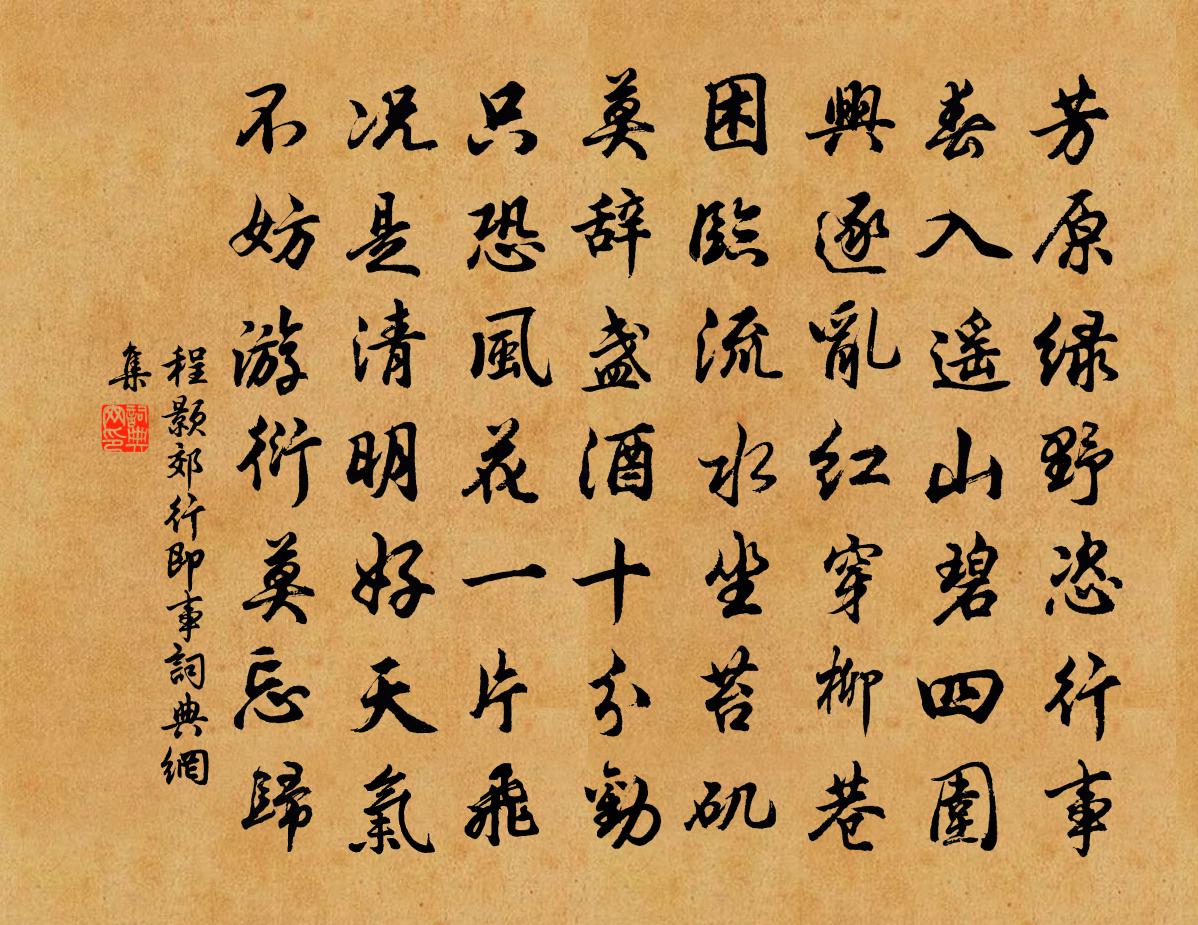 芳原绿野恣行事
春入遥山碧四圍
興逐亂红穿柳巷
困臨流水坐苔矶
莫辞盏酒十分勸
只恐風花一片飛
况是清明好天氣
不妨游衍莫忘歸
程颢郊行即事詞典網
集
詞典
网印